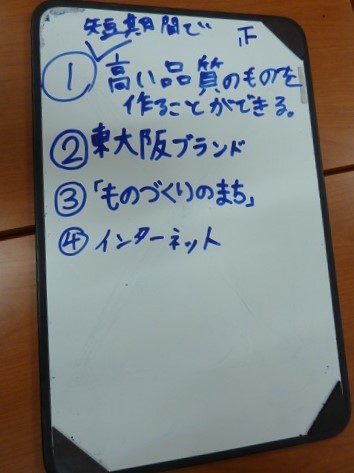 短期間で
正
① 高い品質のものを
作ることができる。
② 東大阪ブランド
③ 「ものづくりのまち」
④ インターネット